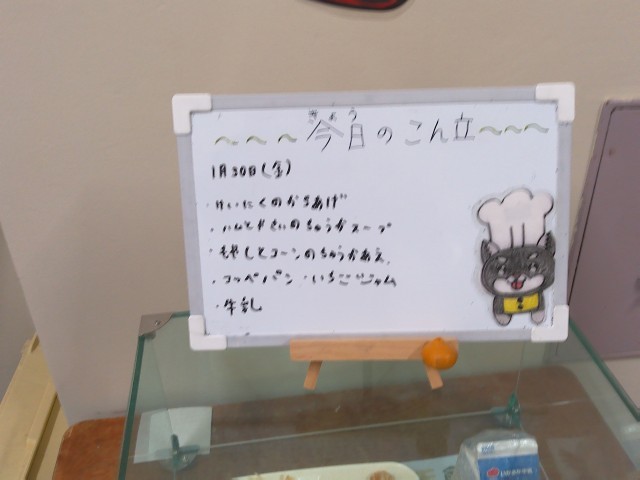 きょう
～～～今日のこん立～～～
1月30日(金)
・けいにくのからあげ
・ハムとやさいのちゅうかスープ
・もやしとコーンのちゅうかあえ
・コッペパン ・いちごジャム
・牛乳